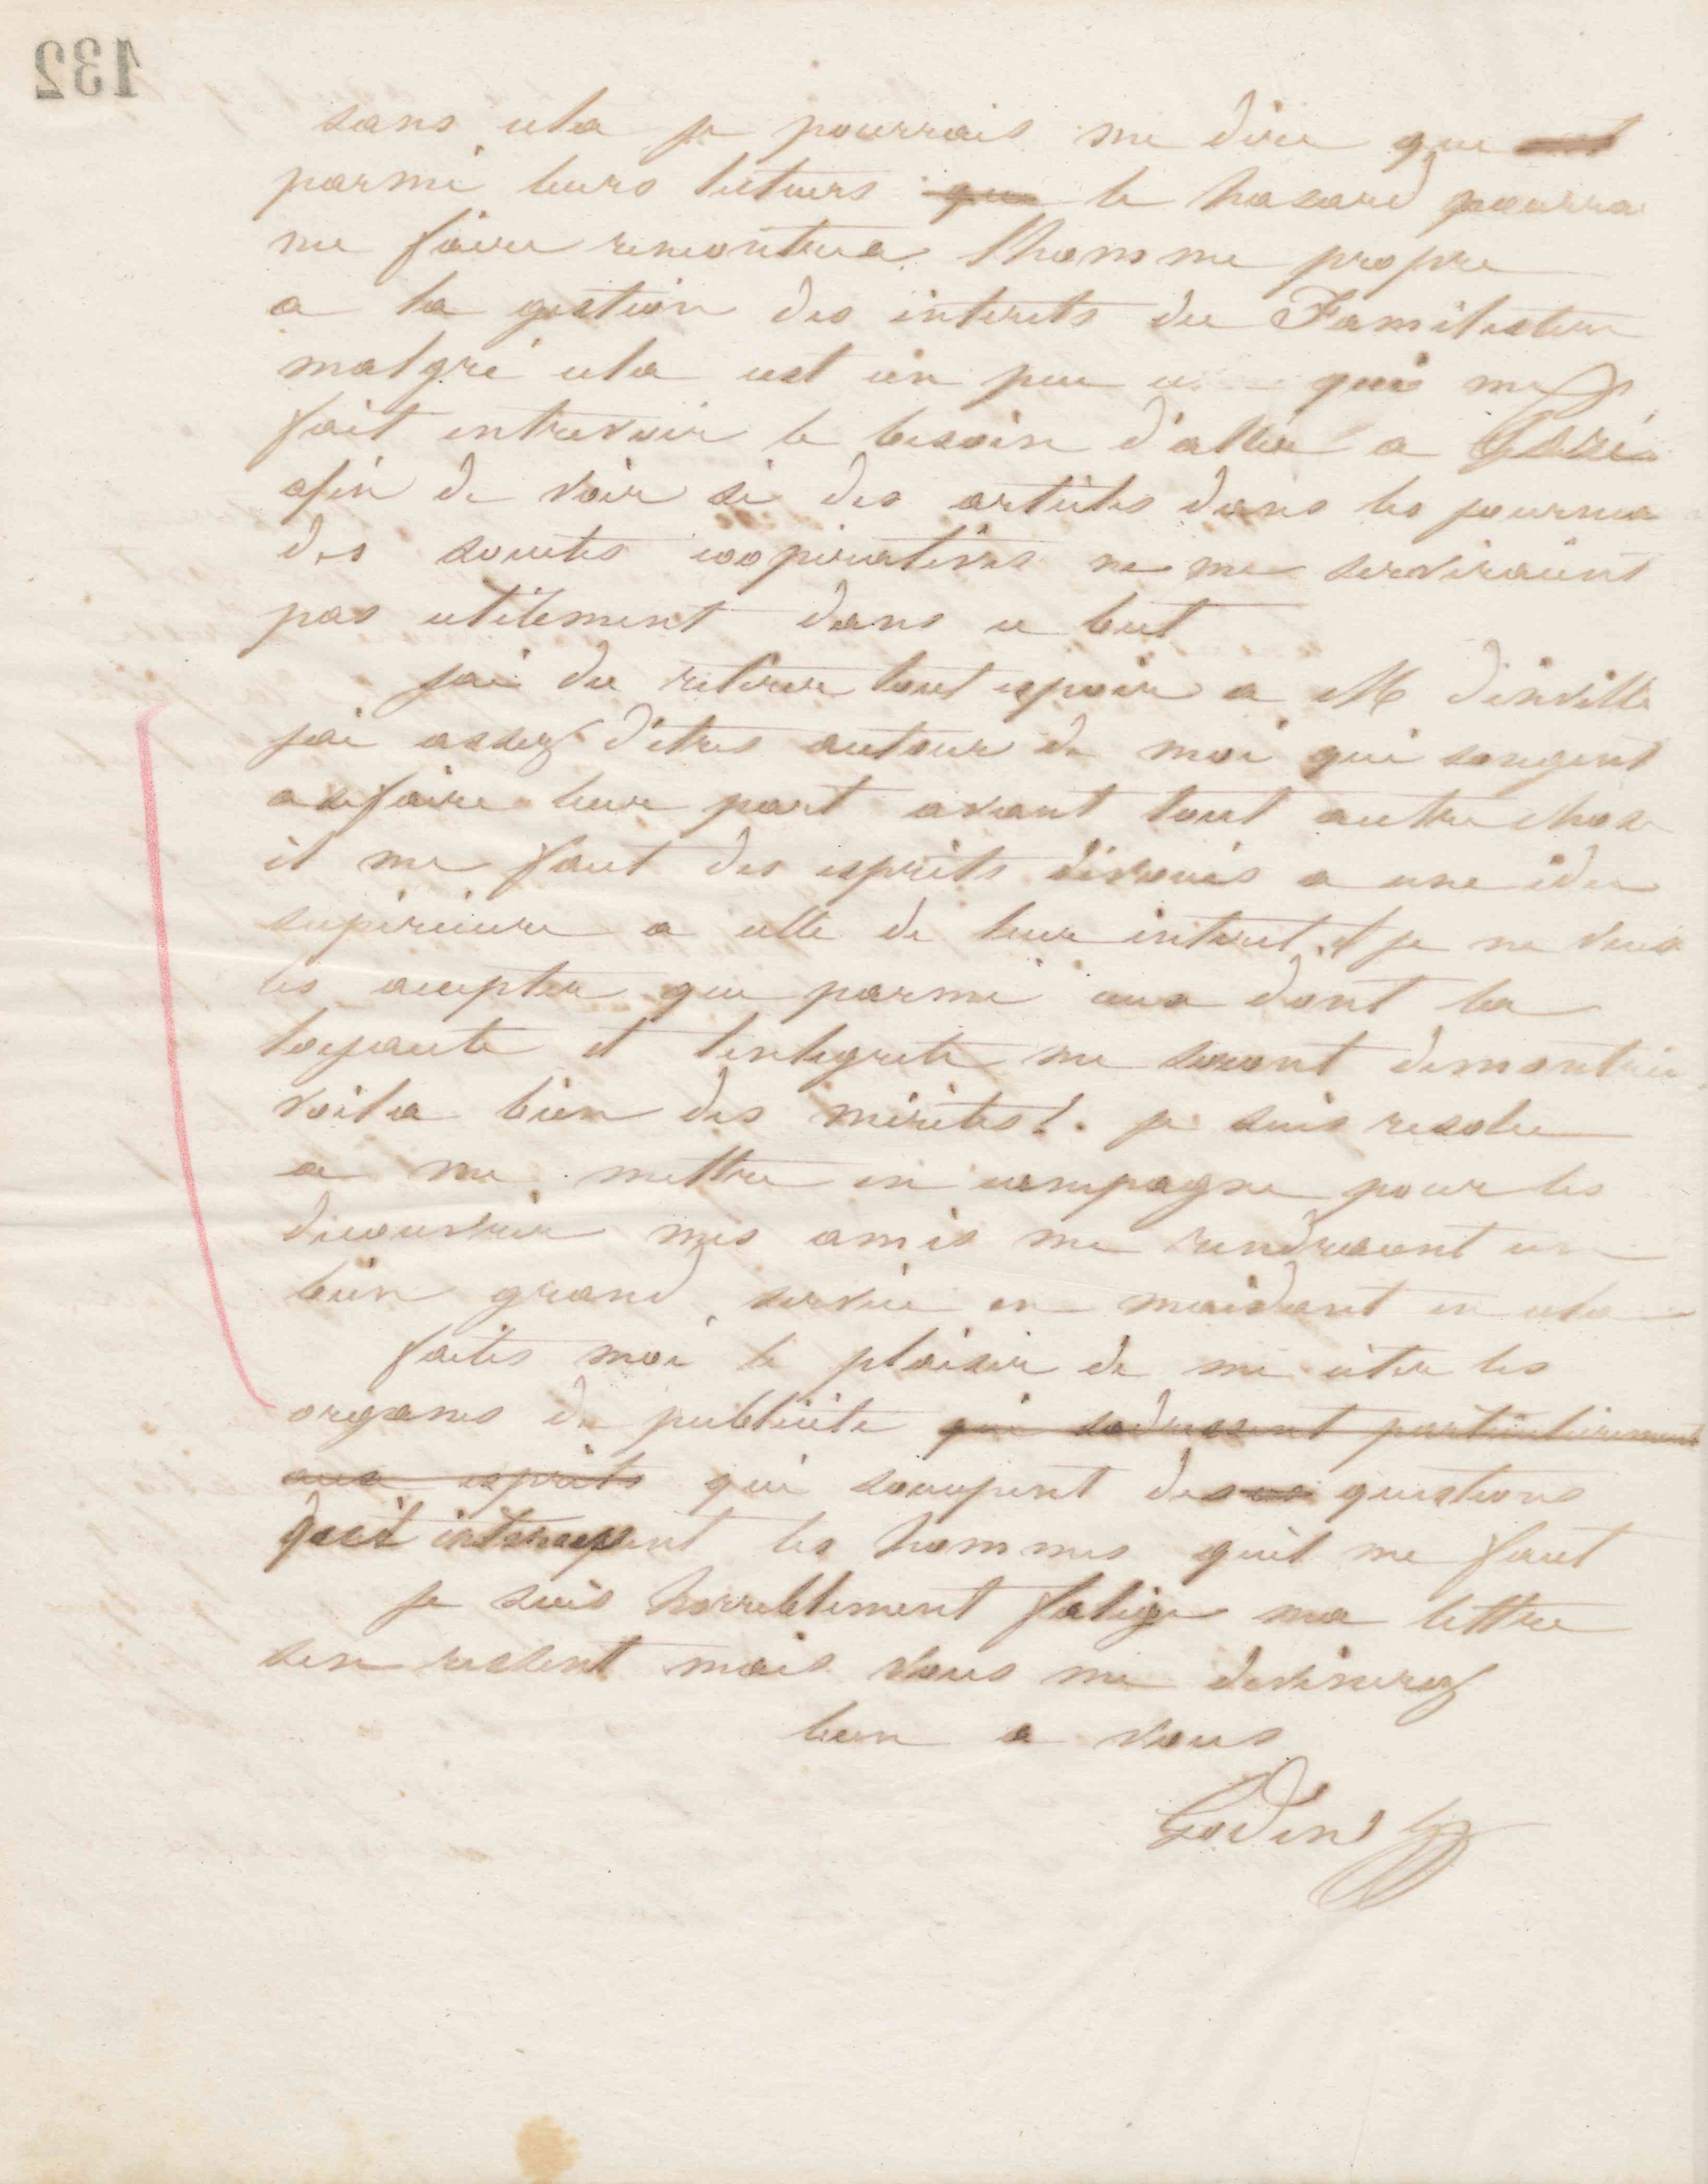 132
sans cela je pourrais me dire que
parmi leurs lecteurs que le hasard pourra
me faire rencontrer lhomme propre
a la gestion des interets du Familistere
malgré cela cest un peu ce qui me
fait entrevoir le besoin d'aller a
afin de voir si des articles dans les journa
des societes cooperatives ne me serviraient
pas utilement dans ce but
jai du retirer tout espoir a M
jai assez d'etres autour de moi qui songent
a se faire leur part avant tout autre chose
il me faut des esprits dévoués a une idee
superieure a celle de leur interet et je ne veux
les accepter que parmi ceux dont la
loyaute et lintegrite me seront demontrées
voila bien des mérites! je suis resolu
a me mettre en campagne pour les
decouvrir mes amis me rendraient un
bien grand service en maidant en cela
faites moi le plaisir de me citer les
organes de publicité qui sadressent particulierement
aux esprits qui soccupent des questions
les hommes quil me faut
je suis horriblement fatigé ma lettre
sen ressent mais vous me devinerez
bien a vous
Godin